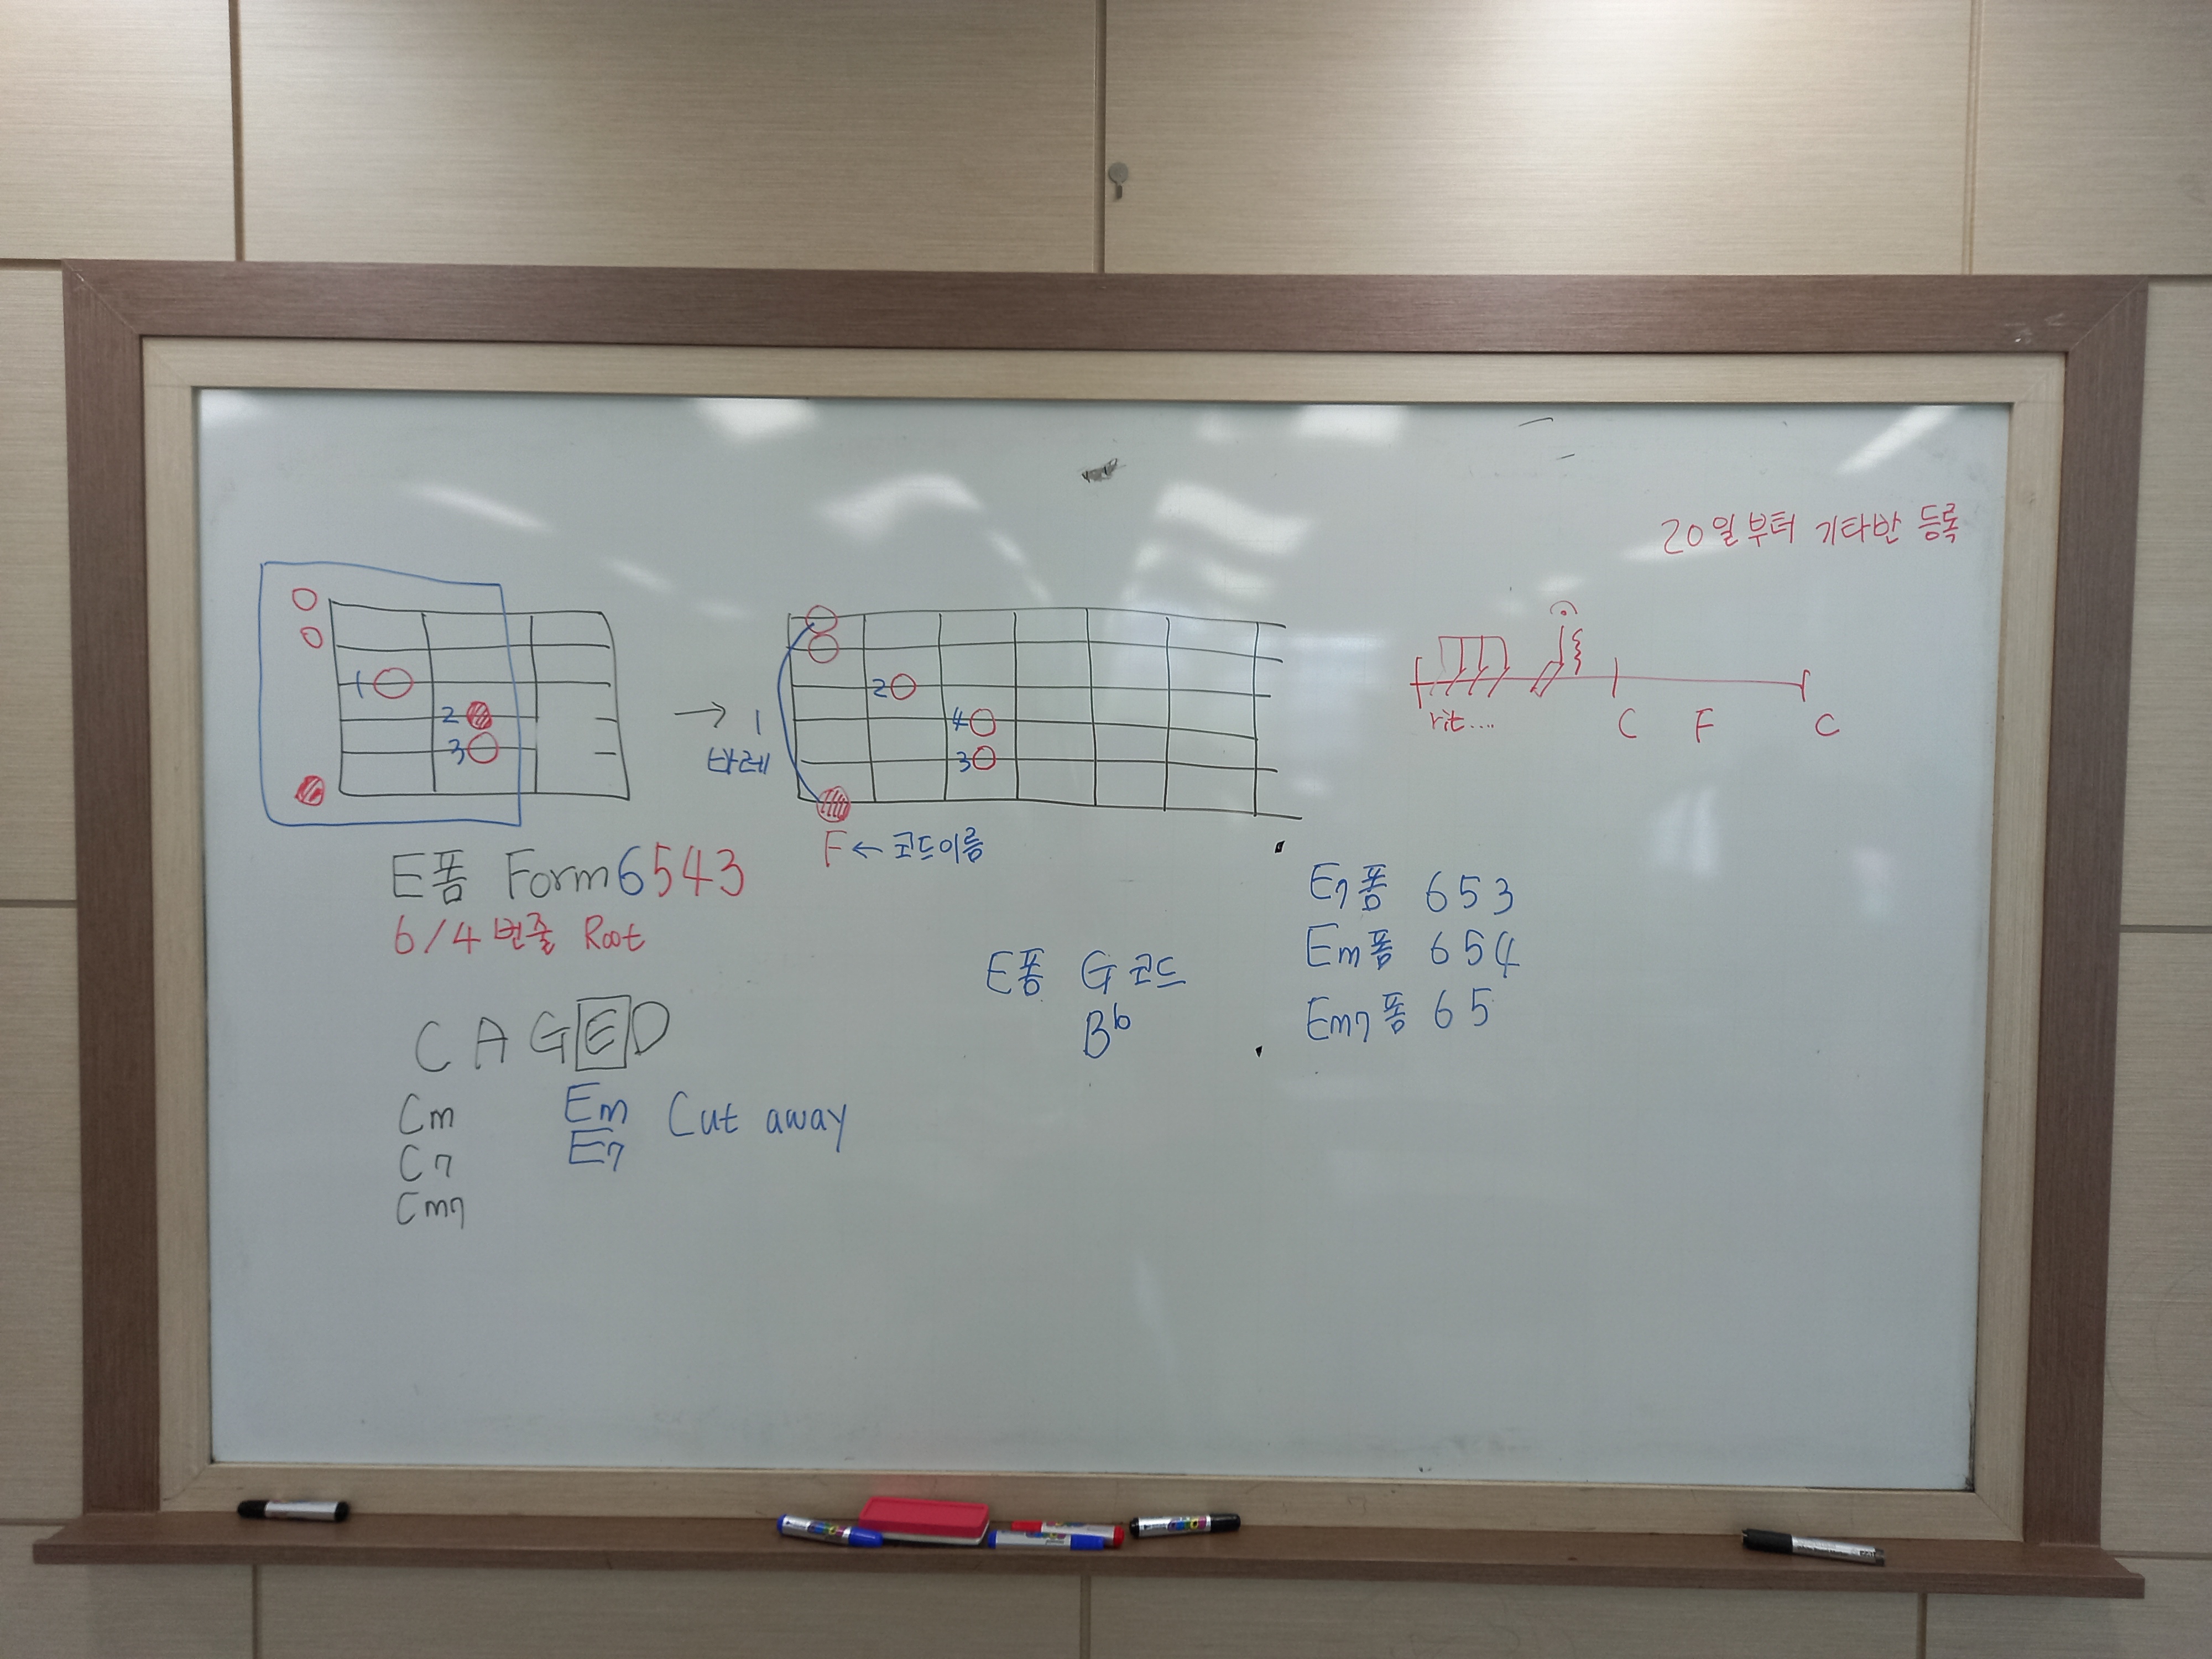 20일부터 기타반 등록
1
2
3
1
바레
2
4
3
F ← 코드이름
rit....
C F C
E폼 Form 6543
6/4번줄 Root
C A G E D
Cm
C7
Cm7
Em Cut away
E7
E폼 G코드
B♭
E7폼 653
Em폼 654
Em7폼 65